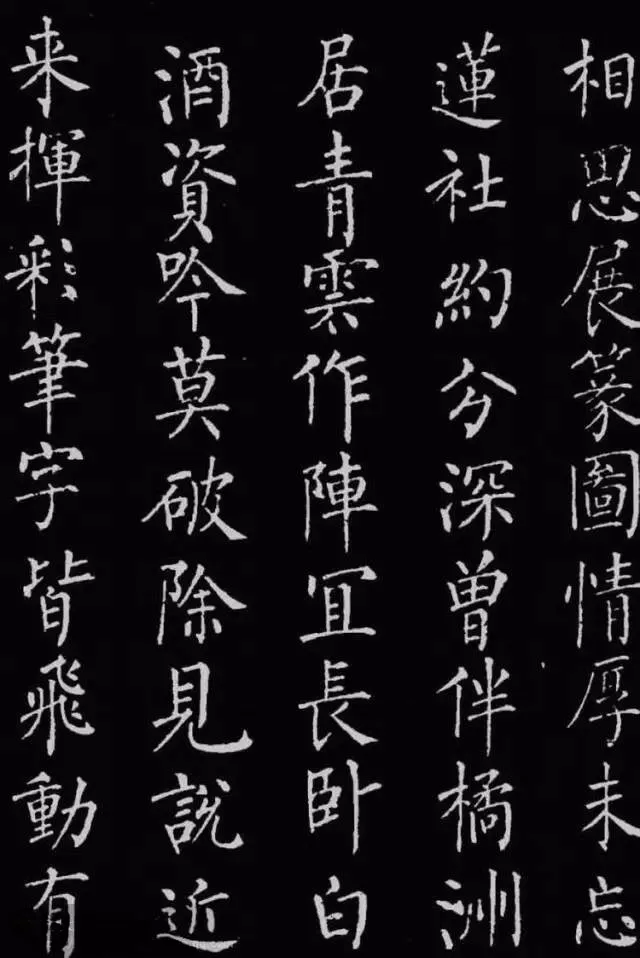 相思展篆圖情厚未忘
蓮社約分深曾伴橘洲
居青雲作陣宜長臥白
酒資吟莫破除見說近
来揮彩筆字皆飛動有